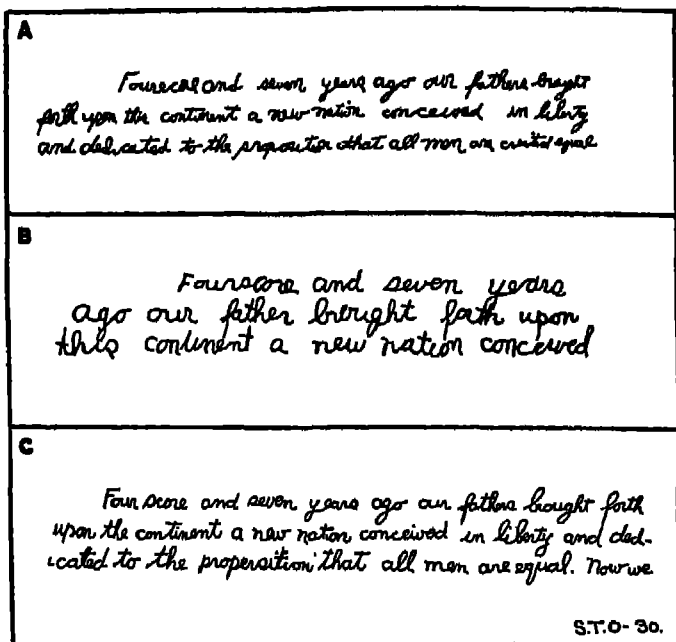 A
Fourscore and seven years ago our fathers brought
forth upon this continent a new nation conceived in liberty
and dedicated to the proposition that all men are created equal
B
Fourscore and seven years
ago our father brought forth upon
this continent a new nation conceived
C
Four score and seven years ago our fathers bought forth
upon the continent a new nation conceived in liberty and ded-
icated to the propersition that all men are equal. Now we
S.T.O-30.